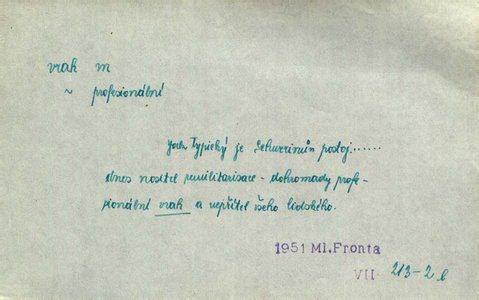 vrak m
~ profesionální
Jak typický je Schwerinův postoj......
dnes nositel remilitarisace - dohromady profe-
sionální vrak a nepřítel všeho lidského.
1951 Ml.Fronta
VII 213-2b